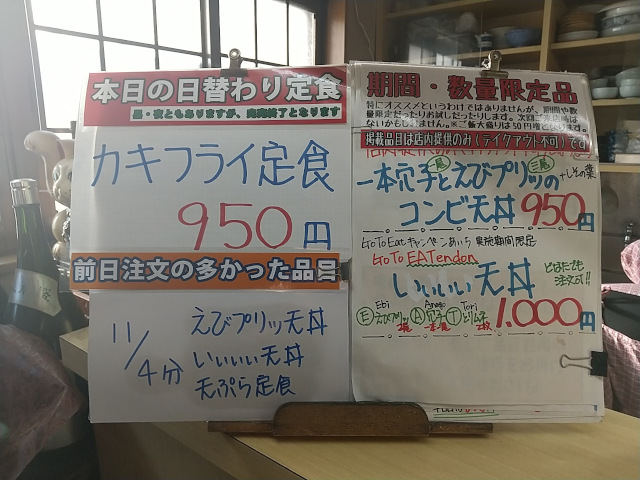 本日の日替わり定食
昼・夜ともありますが、売売終了となります
カキフライ定食
950円
前日注文の多かった品目
11/4分
えびプリッ天丼
いいいい天丼
天ぷら定食
期間・数量限定品
特にオススメというわけではありませんが、期間や数
量限定だったりお試しだったりします。次回ご来店時は
ないかもしれません。※ご飯大盛りは50円増と
掲載品目は店内提供のみ(テイクアウト不可)です
一本穴子とえびプリッの
+しその葉
コンビ天丼 950円
GoTo Eatキャンペーンあいち 実施期間限定
GoTo EATendon
いいいい天丼
とはだれでも
注文可!!
Ebi Anago Tori
Eえびプリッ A穴子 Tとりムネ
2尾 一本 2枚
1.000円